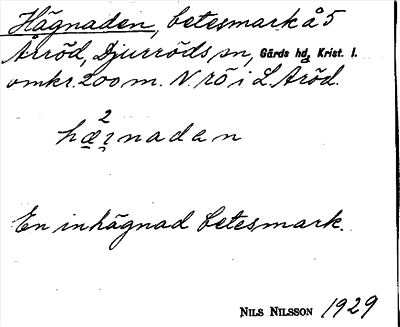 Hägnaden, betesmark å 5
Aröd, Djurröds sn, Gärds hd, Krist. l.
omkr. 200 m. N. rö i L. Aröd.
2
hæɪnadan
En inhägnad betesmark.
NILS NILSSON 1929